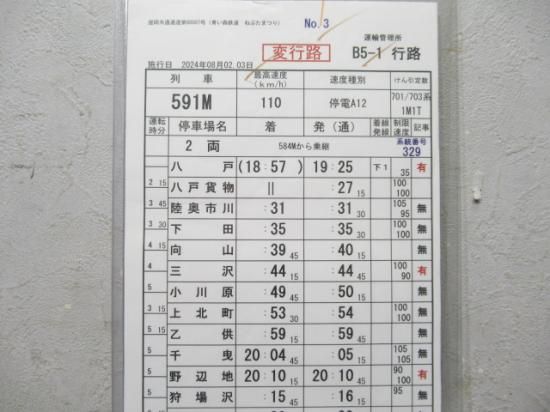 No. 3
運輸管理所
変行路
B5-1 行路
施行日 2024年08月02.03日
列車 最高速度(km/h) 速度種別 けん引定数
591M 110 停電A12 701/703系 1M1T
運転時分 停車場名 着 発(通) 着線発線 制限速度 記事
2 両 584Mから乗継 系統番号 329
八戸 (18:57) 19:25 下1 35 有
2 15 八戸貨物 || :27 15 100 100
3 45 陸奥市川 :31 :31 30 105 95 無
3 30 下田 :35 :35 30 100 100 無
4 15 向山 :39 45 :40 15 無
4 三沢 :44 15 :44 45 100 90 有
5 小川原 :49 45 :50 15 無
3 15 上北町 :53 30 :54 100 100 無
5 乙供 :59 15 :59 45 無
5 千曳 20:04 45 :05 15 105 105 無
5 野辺地 20:10 15 20:10 45 90 100 有
5 狩場沢 :15 45 :16 15 無